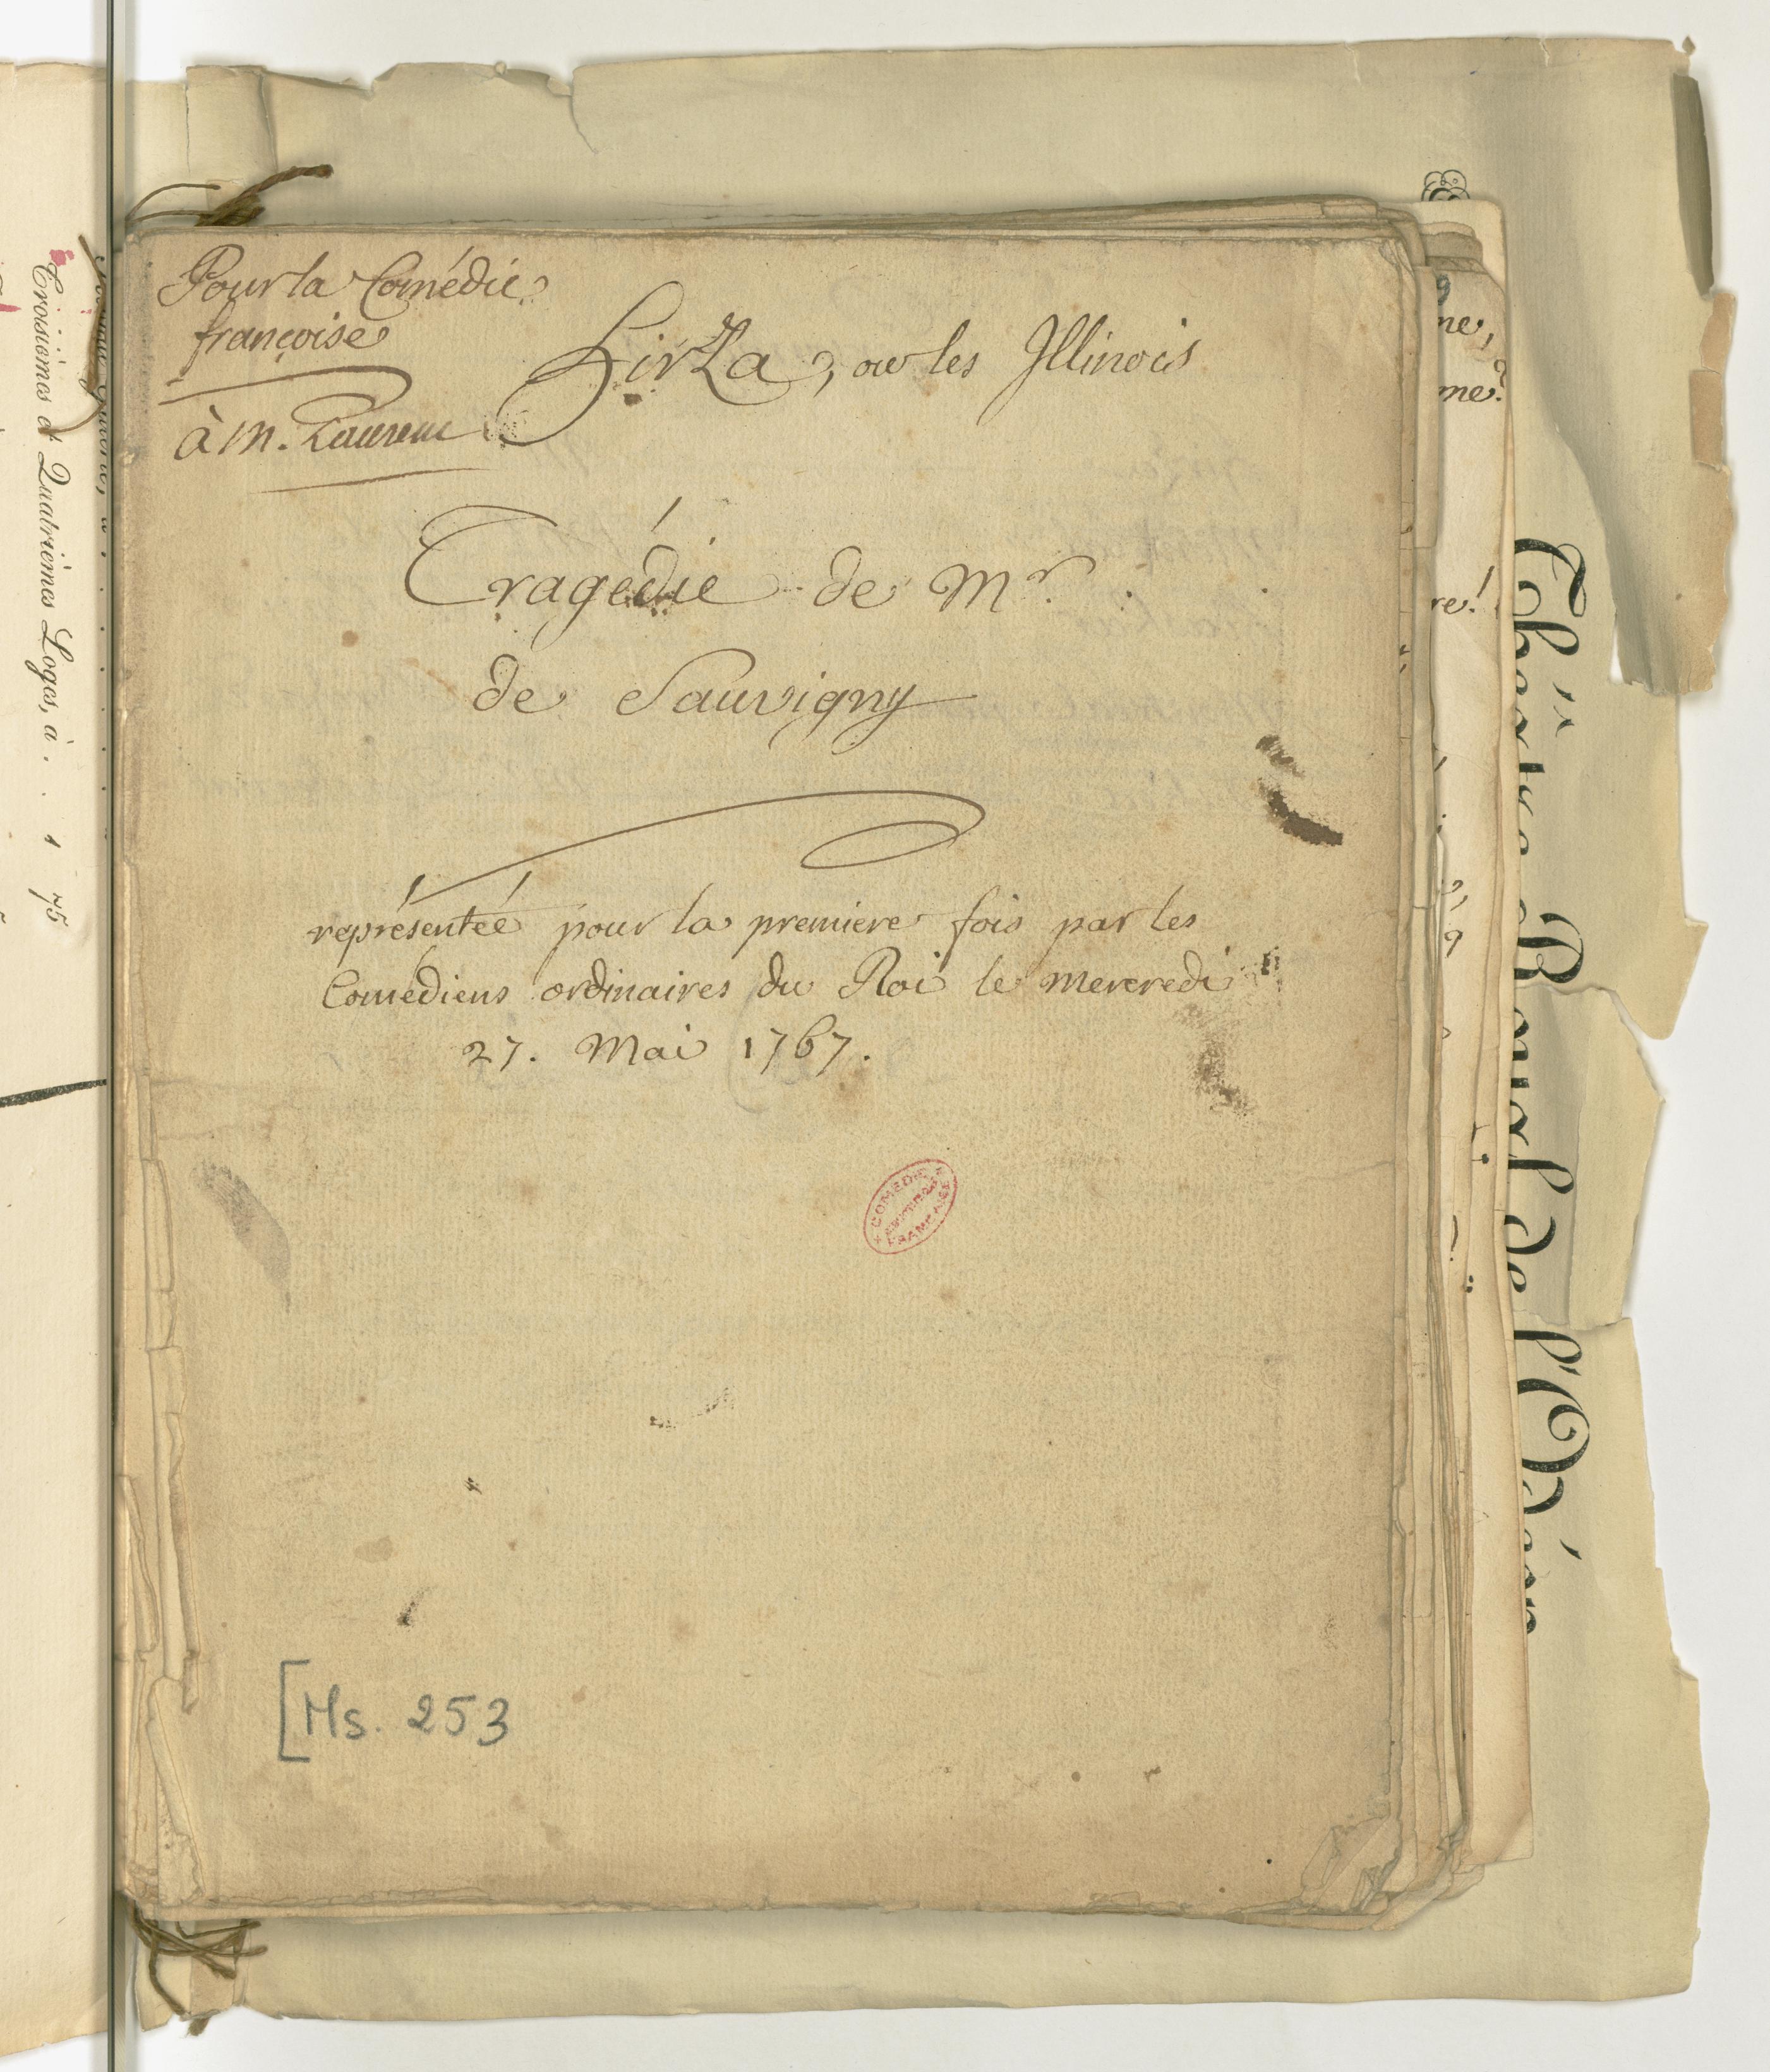 Pour la Comédie
françoise
à M. Laurent
Hirza, ou les Illinois
Tragédie de Mr.
de Sauvigny
représentée pour la premiere fois par les
Comédiens ordinaires du Roi le mercredi
27. Mai 1767.
COMÉDIE
FRANÇAISE
[Ms. 253
Troisièmes et Quatrièmes Loges, à . . 1 75
ne,
me?
re!
Théâtre Royal de l'Odéon